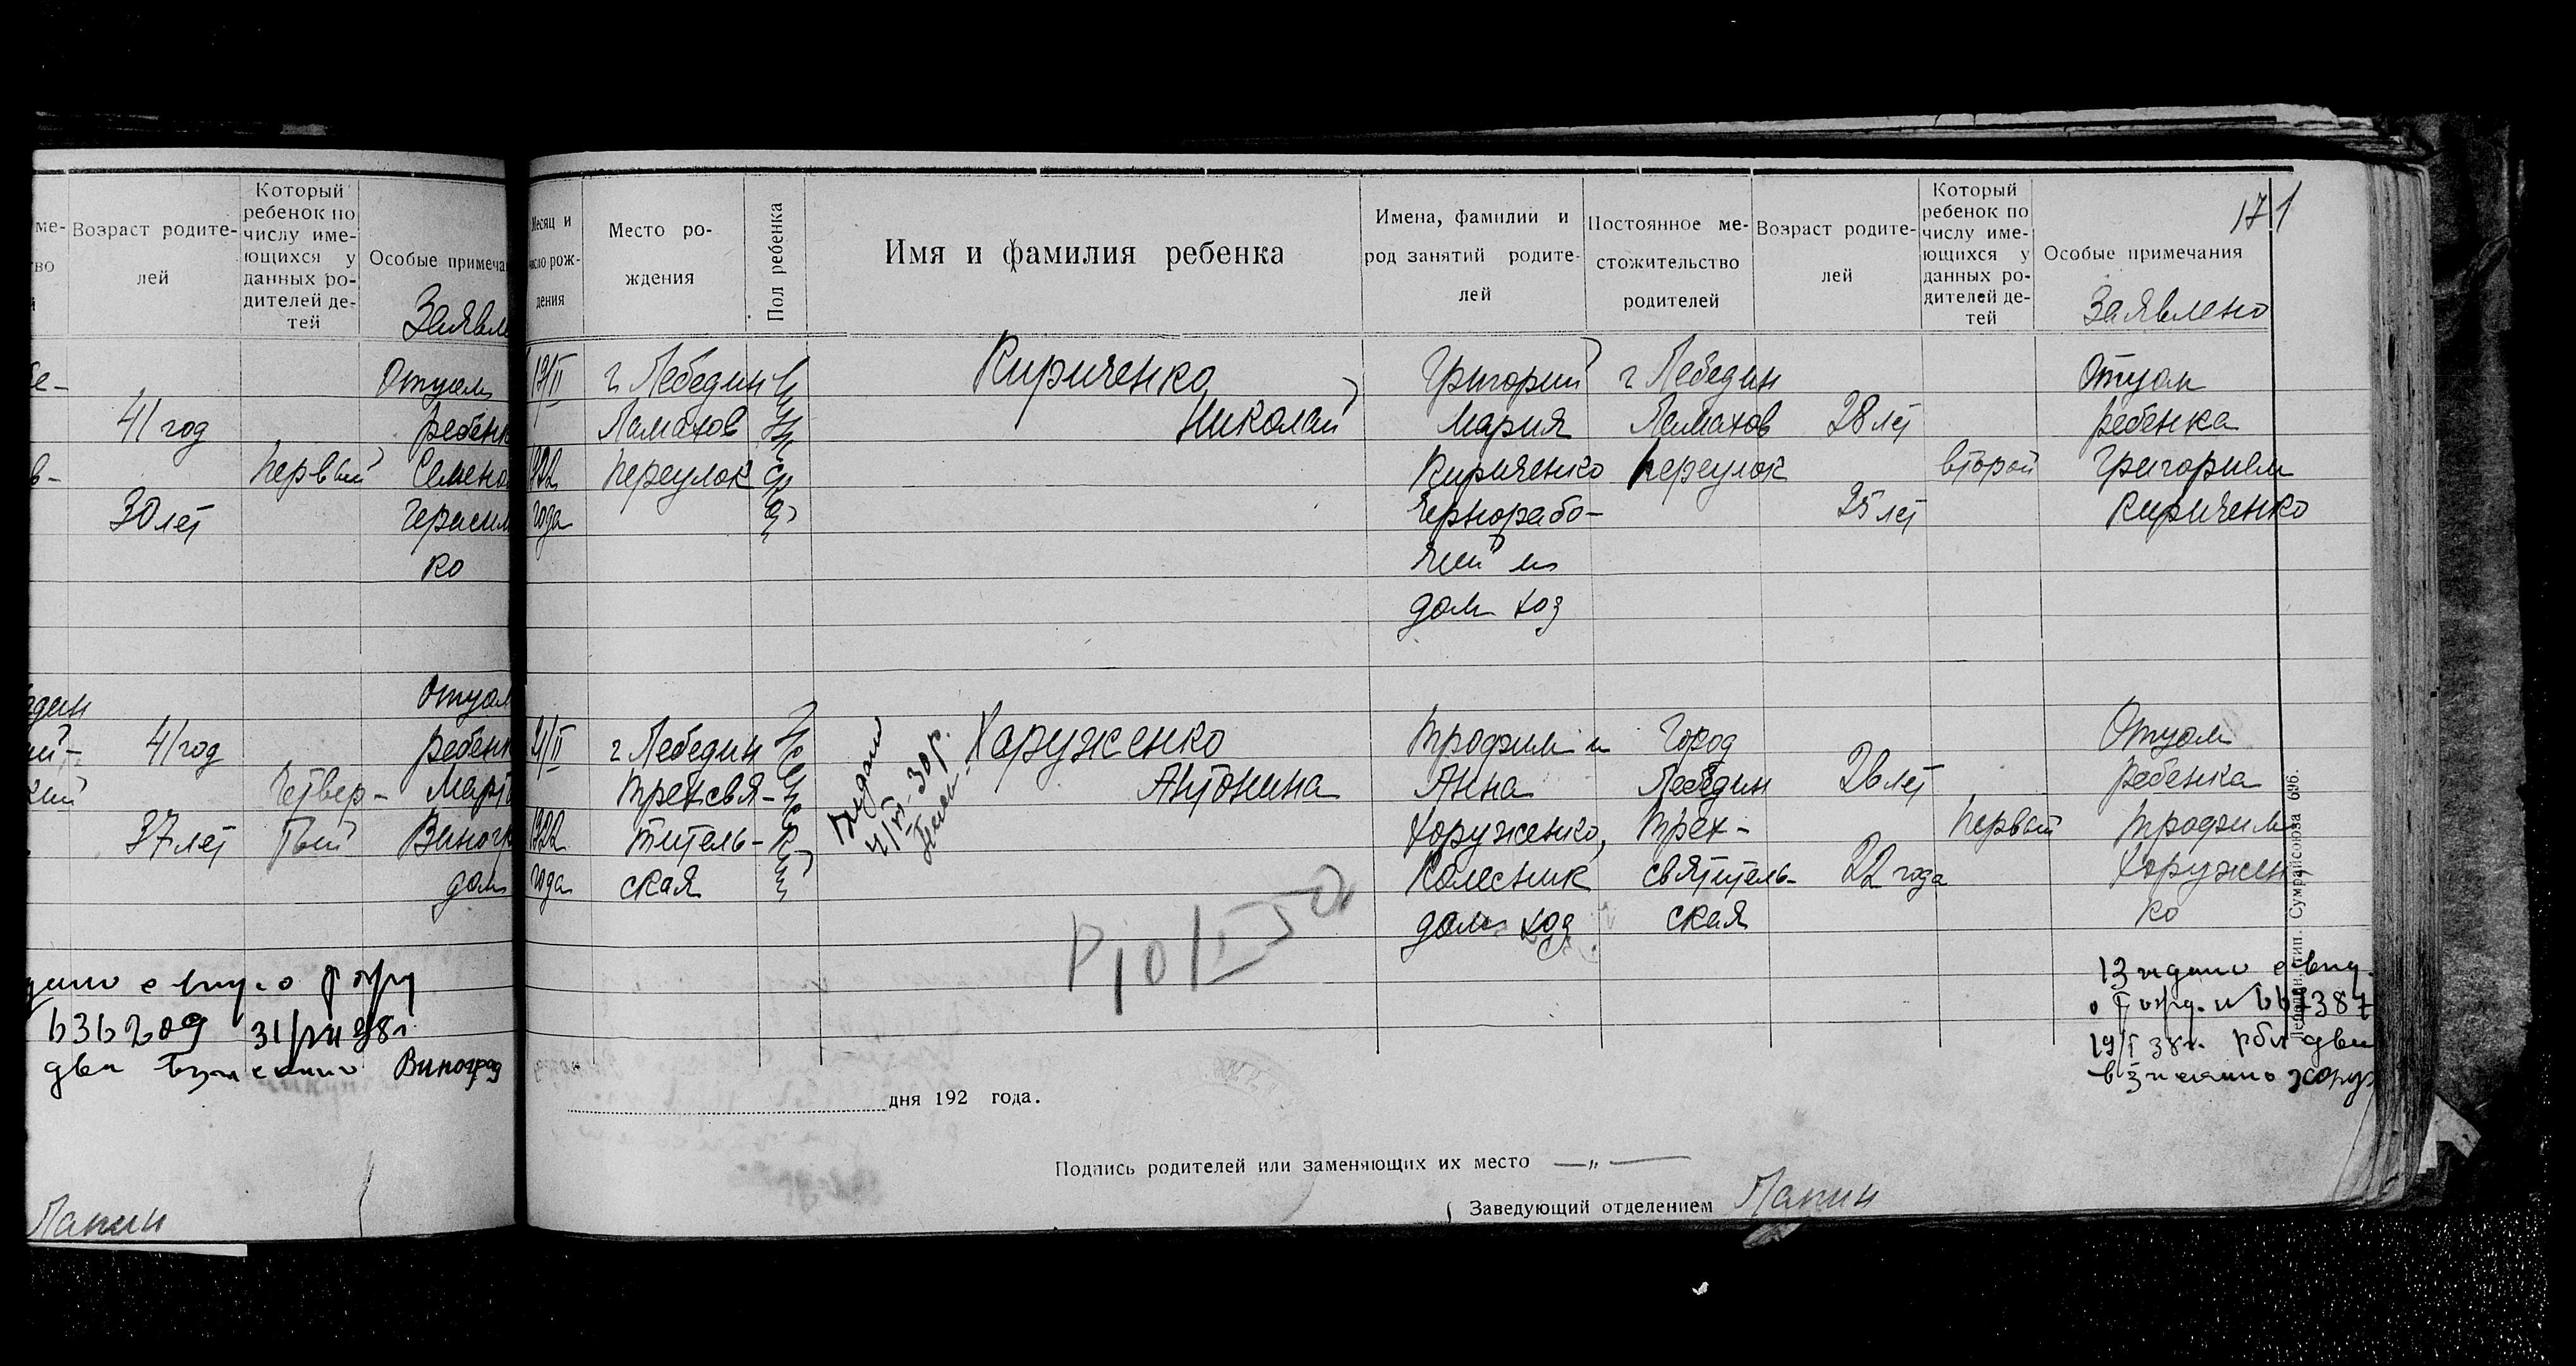 Возраст родите-
лей
Который
ребенок по
числу име-
ющихся у
данных ро-
дителей де-
тей
Особые примеча
Заявле
41 год
30 лет
первый
Отцом
ребенк
Семено
Герасим
ко
41 год
37 лет
Четвер-
тый
Отцом
ребенк
Март
Виногр
дом
636209
два
Виноград
Лапин
171
Месяц и
число рож-
дения
Место ро-
ждения
Пол ребенка
Имя и фамилия ребенка
Имена, фамилии и
род занятий родите-
лей
Постоянное ме-
стожительство
родителей
Возраст родите-
лей
Который
ребенок по
числу име-
ющихся у
данных ро-
дителей де-
тей
Особые примечания
Заявлено
1922
года
г Лебедин
Ламахов
переулок
Мужской
Кириченко
Николай
Григорий
Мария
Кириченко
Чернорабо-
чий и
дом хоз
г Лебедин
Ламахов
переулок
28 лет
25 лет
второй
Отцом
ребенка
Григорием
Кириченко
21/II
1922
года
г Лебедин
Трехсвя-
титель-
ская
Женский
Харуженко
Антонина
Трофим и
Анна
Хоруженко,
Колесник
дом хоз
Город
Лебедин
Трех-
святитель-
ская
26 лет
22 года
первый
Отцом
ребенка
Трофим
Хоружен
ко
дня 192 года.
Подпись родителей или заменяющих их место — „ —
Заведующий отделением Лапин